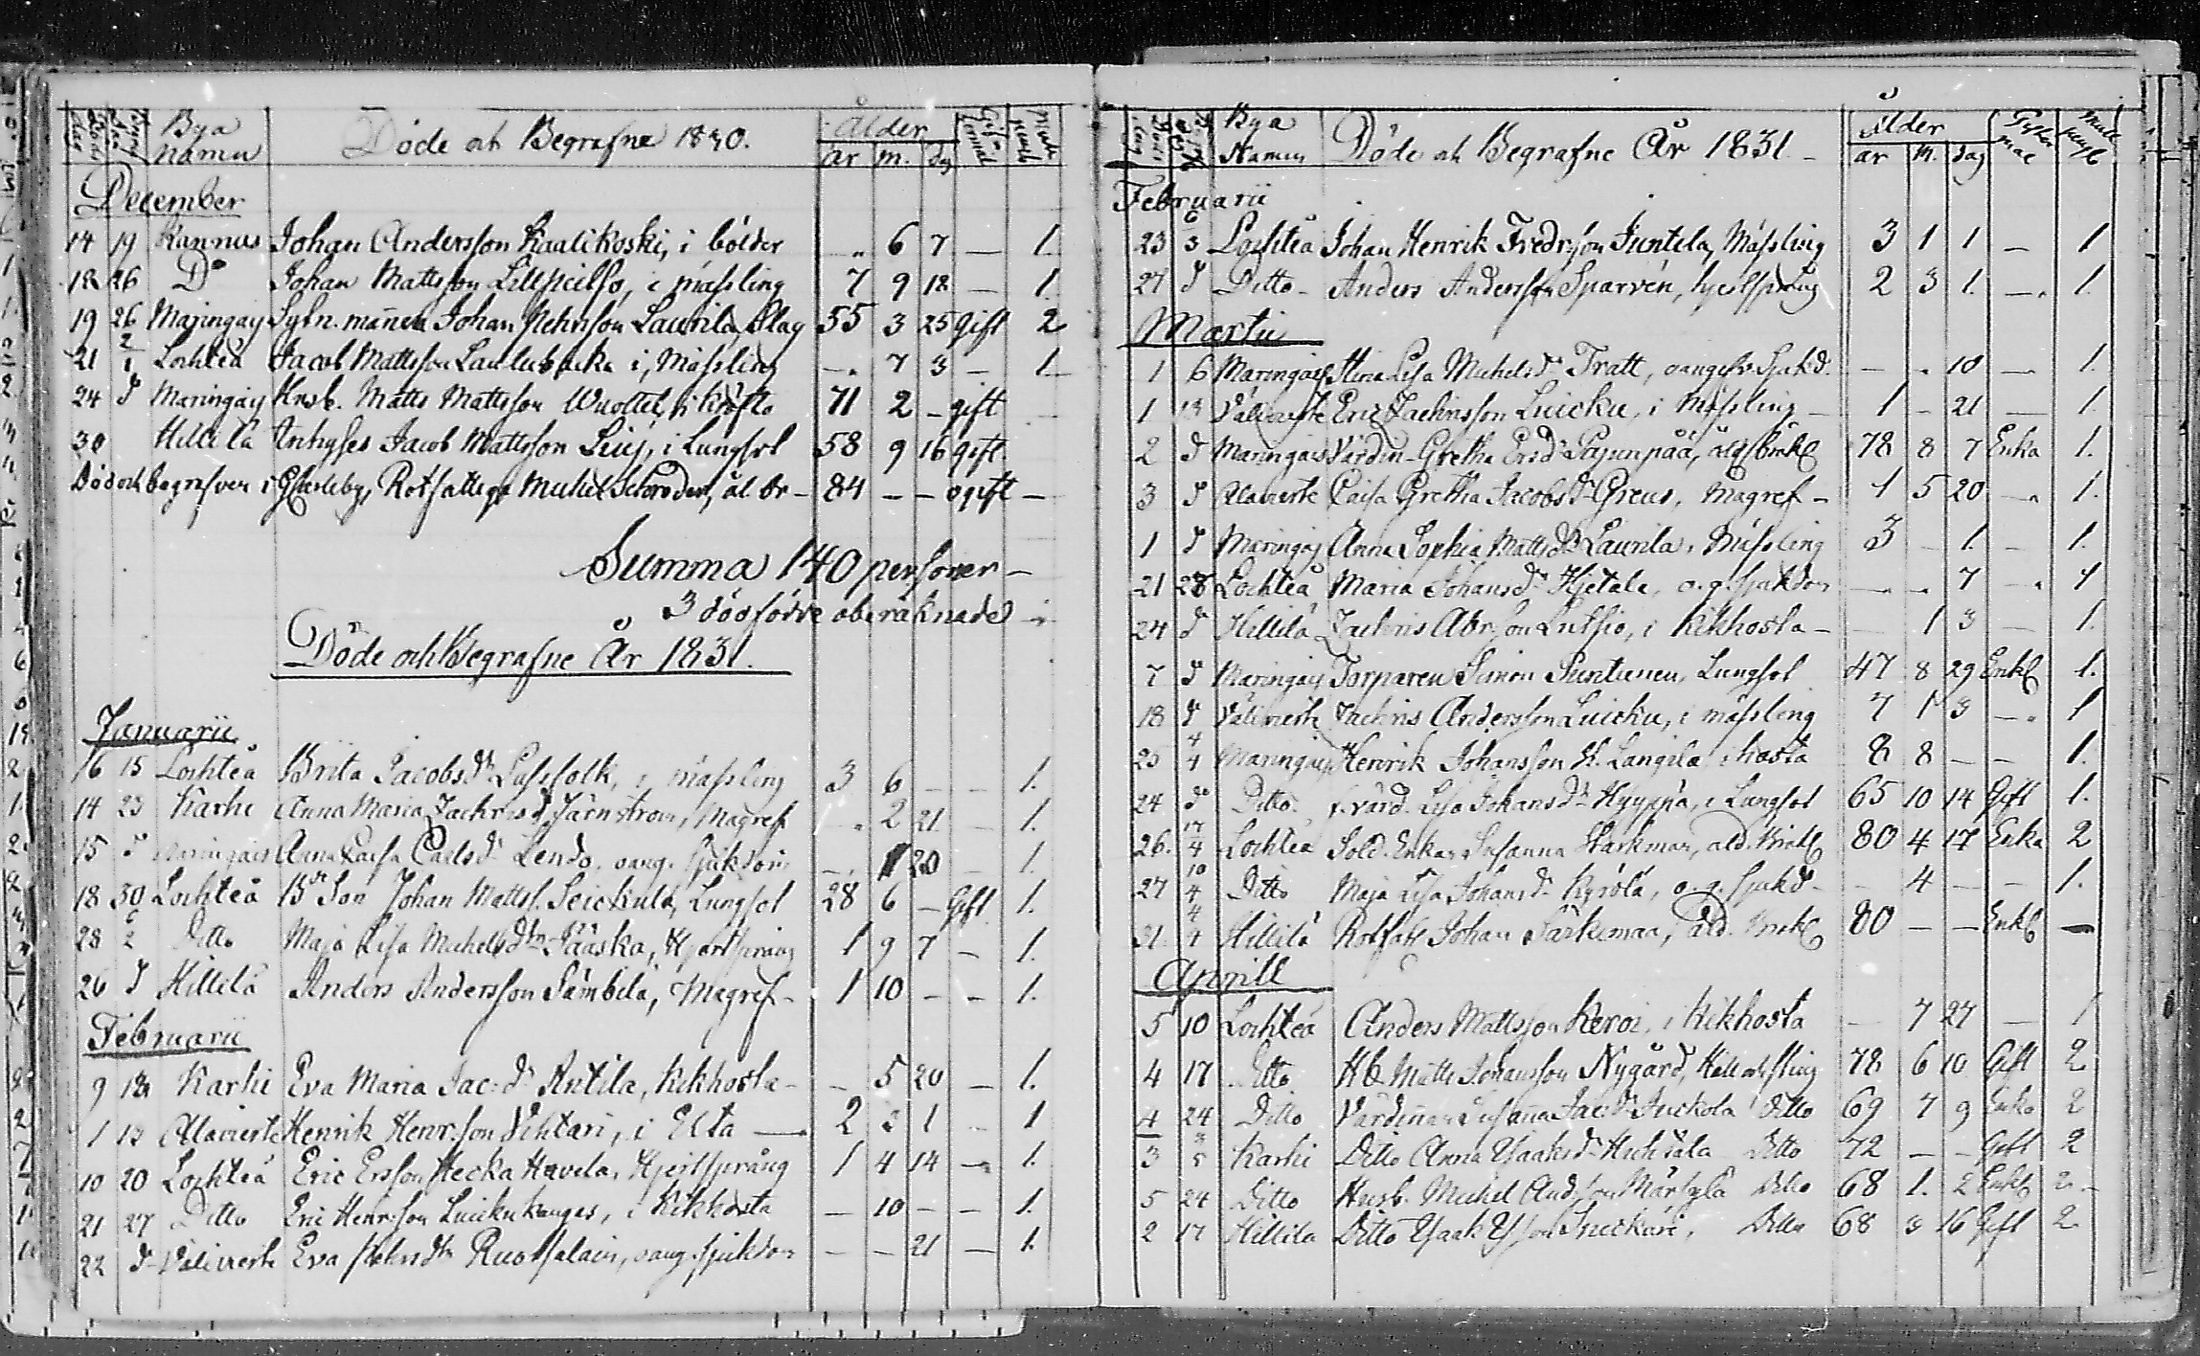 Bya namn Döde och Begrafne 1830. Ålder år m. dag
December
14 19 Kannus Johan Andersson Kaalikoski, i bölder - " 6 7 - 1.
18 26 D° Johan Mattsson i mässling 7 9 18 - 1.
19 26 Maringais man Johan Laurila, Slag 55 3 25 Gift 2
21 2/1 Lochteå Jacob Mattsson i, Mässling - " 7 3 - 1
24 d Maringais Husb. Matts Mattsson 71 2 - gift
30 Hillilä Inhyses Jacob Mattsson i Lungsot 58 9 16 gift
Död och begrafven i Rotfattige Michel Schroder, ål br - 84 - - ogift -
Summa 140 personer -
3 dödfödde oberäknade
Döde och Begrafne År 1831.
Januarii
16 15 Lochteå Brita Jacobsdr i mässling 3 6 - - 1.
14 23 Karhi Anna Maria Järnström, Magref - " 2 21 - 1.
15 d Maringais Anna Caisa Carlsdr Lendo. oang. sjukdom - . 1 20 - 1.
18 30 Lochteå Bd Son Johan Matts. Lungsot 28 6 - Gift 1.
28 6/2 Ditto Maja Lisa Michelsdtr Pääska, Hjertsprång 1 9 7 - 1.
26 d Hillilä Anders Andersson Sämbilä, Magref - 1 10 - - 1.
Februarii
9 13 Karhi Eva Maria Jac: dr Antila, Kikhosta - - 5 20 - 1.
1 13 Alavierte Henrik Henr.son Vihtari, i Elta 2 3 1 - 1
10 20 Lochteå Eric Ersson Hecka Havela, Hjertsprång 1 4 14 - 1.
21 27 Ditto Eric Henr.son Luickukangas, i Kikhosta - 10 - - 1.
22 d Välivierte Eva Ruotsalain, oang. sjukdom - - 21 - 1.
Bya Namn Döde och Begrafne År 1831. Ålder år m. dag
Februarii
23 6/3 Lochteå Johan Henrik Fredrsson Juntila, Mässling 3 1 1 - 1
27 d Ditto - Anders Andersson Sparvén, hjertsprång 2 3 1. - . 1.
Martii
1 6 Maringais Stina Lisa Michelsdr Tratt, oangifv. Sjukd. - . 10 - 1.
1 13 Välivierte Eric Zachrisson Luicku, i Mässling - 1 - 21 - 1.
2 d Maringais Värdin. Gretha Ersdr Pajunpää, 78 8 7 Enka 1.
3 d Alavierte Caisa Gretha Jacobsdr Greus, Magref - 1 5 20 - . 1.
1 d Maringais Anna Sophia Mattsdr Laurila, Mässling 3 - 1. - 1.
21 28 Lochteå Maria Johansdr Hietala, o.g. sjukdom - . . 7 - . 1
24 d Hillilä Zachris Abr.son i Kikhosta - 1 3 - 1.
7 d Maringais Torparen Simon Puntunen, Lungsot 47 8 29 Enkl 1.
18 d Välivierte Zachris Andersson Luicku, i mässling 7 1 3 - . 1
25 4/4 Maringais Henrik Johansson i hosta 8 8 - - 1.
24 d Ditto. f. värd. Lisa Johansdr Hyyppä, i Lungsot 65 10 14 Gift 1.
26. 17/4 Lochteå Sold. Enkan Susanna Starkman, 80 4 17 Enka 2
27 10/4 Ditto Maja Lisa Johansdr Kyrölä, o.g. sjukd. - 4 - - 1.
31. 4/4 Hillilä Rotfatt. Johan Särkimaa, 80 - - Enkl -
Aprill
5 10 Lochteå Anders Mattsson Keroi, i Kikhosta - 7 27 - 1
4 17 Ditto Hb. Matts Johansson Nygård, 78 6 10 Gift 2
4 24 Ditto Värdinnan Susanna Jac.dr Juckola Ditto 69 7 9 Enka 2
3 3/5 Karhi Ditto Anna Isaaksdr Ditto 72 - - Gift 2
5 24 Ditto Husb. Michel And.son Märsylä Ditto 68 1. 2 Enkl 2 -
2 17 Hillilä Ditto Isaak Ditto 68 3 16 Gift 2